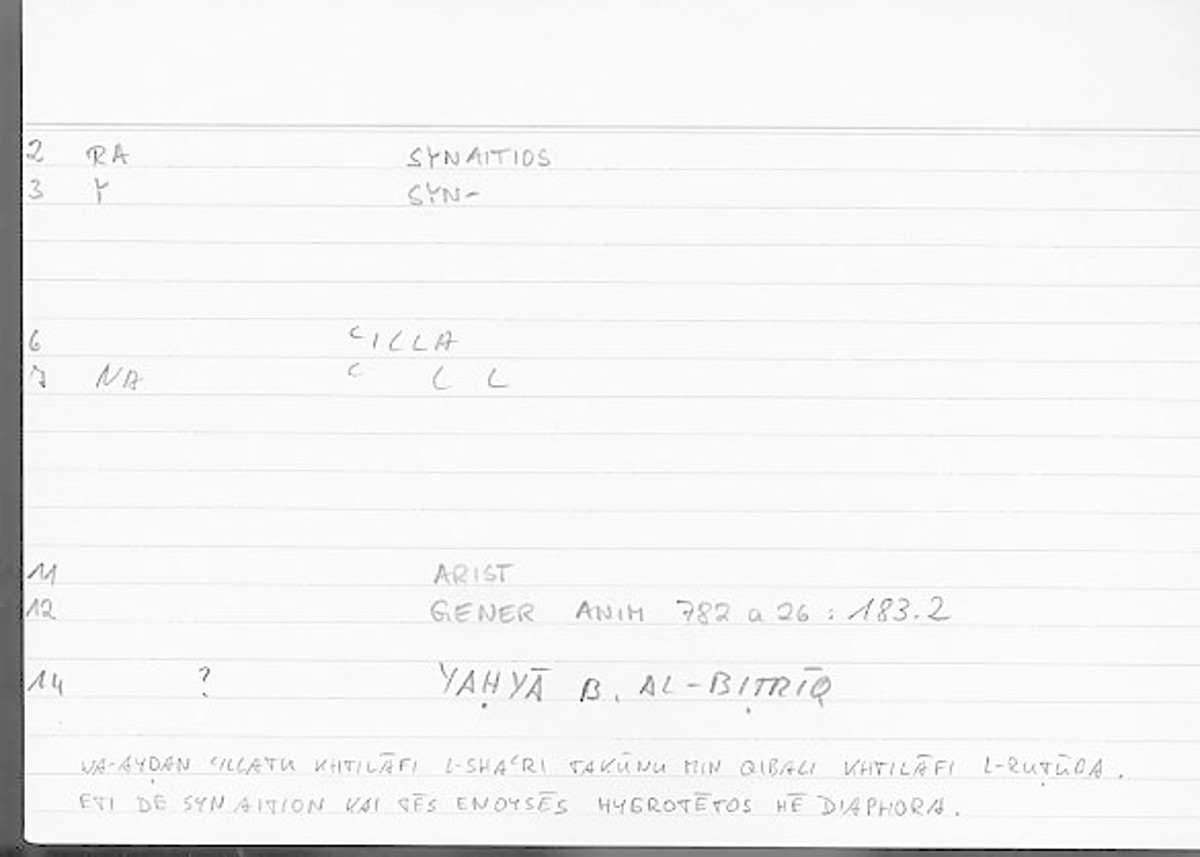 2 RA SYNAITIOS
3 Y SYN-
6 ʿILLA
7 NA ʿ L L
11 ARIST
12 GENER ANIM 782 a 26 : 183.2
14 ? YAḤYĀ B. AL-BIṬRĪQ
WA-AYḌAN ʿILLATU KHTILĀFI L-SHAʿRI TAKŪNU MIN QIBALI KHTILĀFI L-RUṬŪBA.
ETI DE SYNAITION KAI TĒS ENOYSĒS HYGROTĒTOS HĒ DIAPHORA.